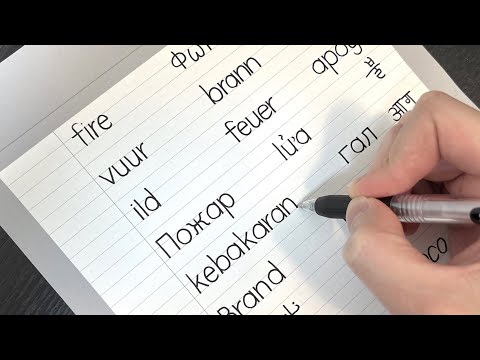 fire
vuur brann
ild feuer apoy
Пожар lửa 불
kebakaran гал आग
Brand